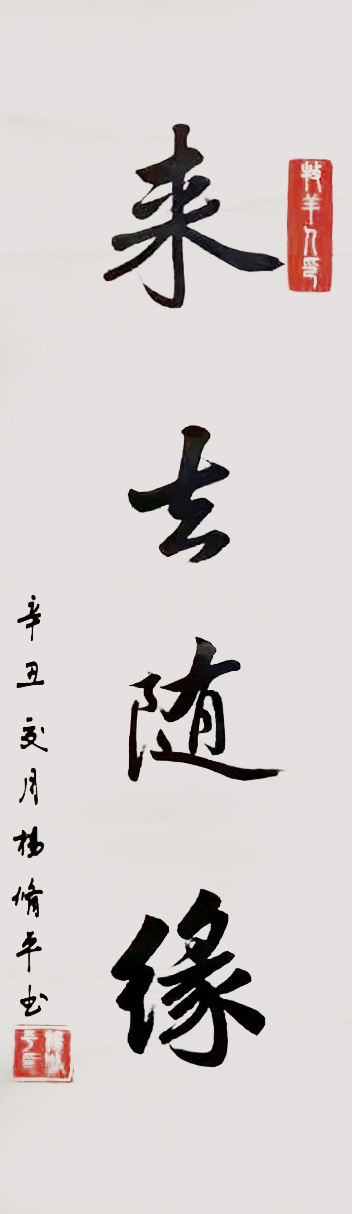 来去随缘
牧羊人印
辛丑夏月杨脩平书